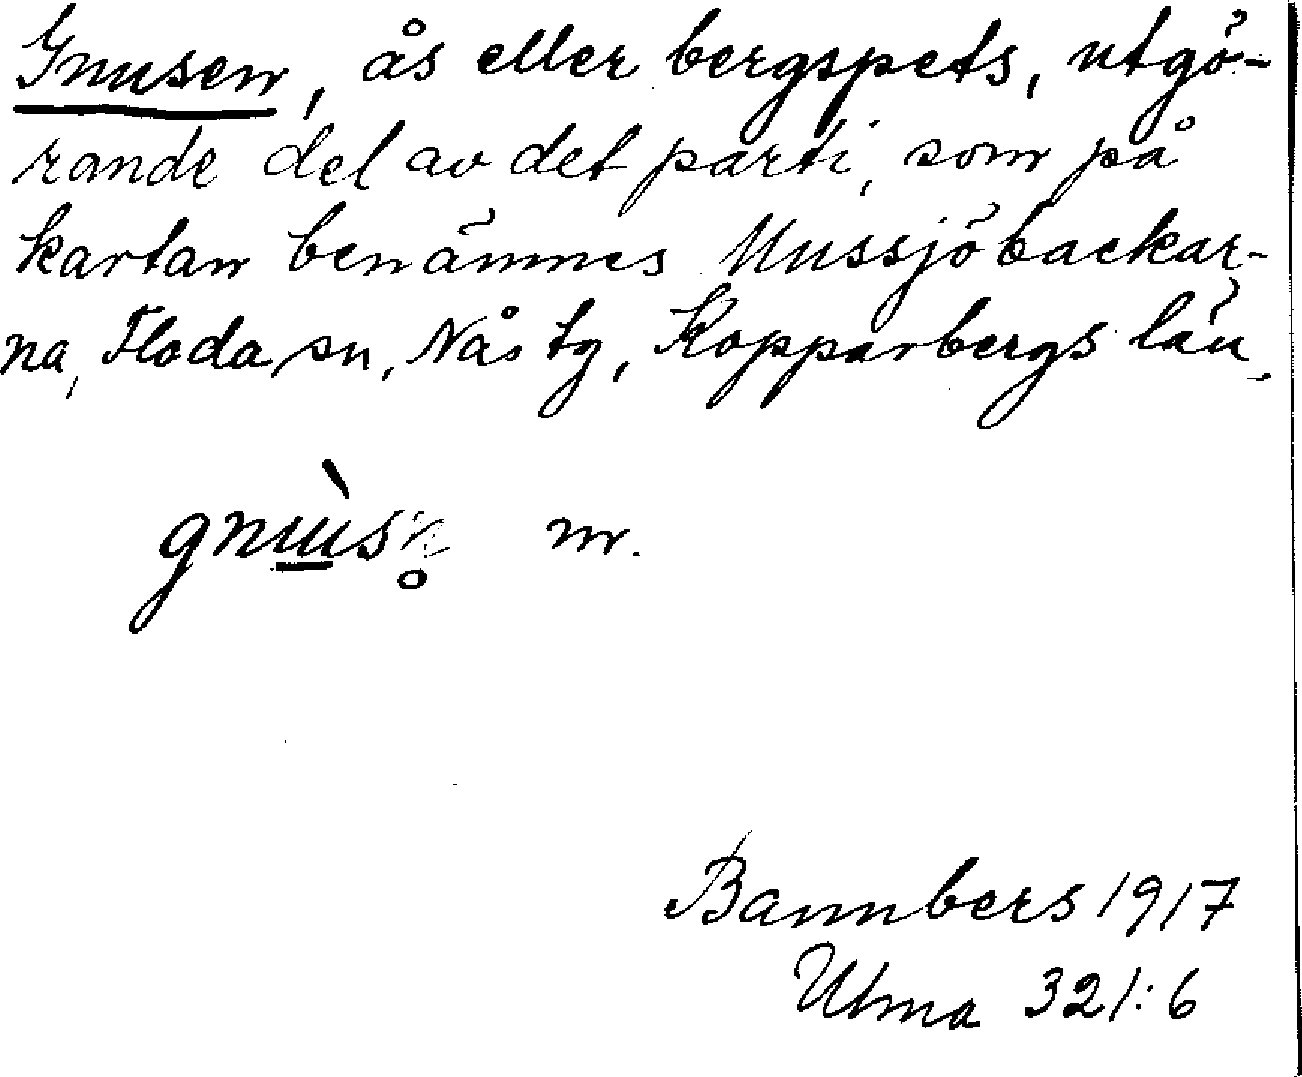 Gnusen, ås eller bergspets, utgö-
rande del av det parti, som på
kartan benämnes Mussjöbackar-
na, Floda sn, Nås tg, Kopparbergs län.
gnɯ̱̀sn̥ m.
Bannbers 1917
Ulma 321:6